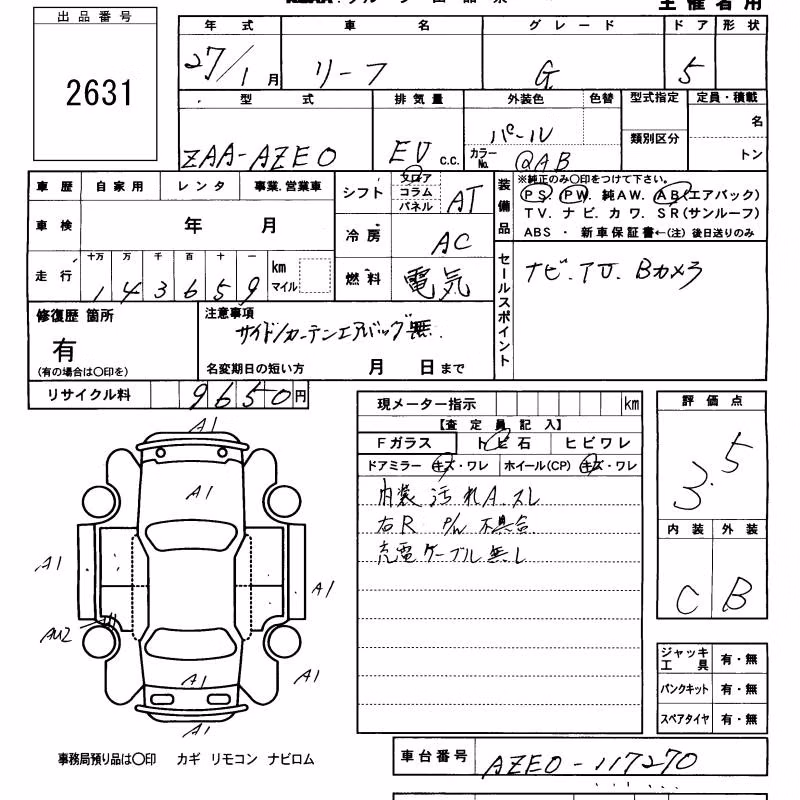 主催者用
出品番号
2631
年式 車名 グレード ドア 形状
27/1月 リーフ G 5
型式 排気量 外装色 色替 型式指定 定員・積載
ZAA-AZE0 EV c.c. パール 類別区分 名
カラーNo. QAB トン
車歴 自家用 レンタ 事業.営業車
車検 年 月
走行 十万 万 千 百 十 一 km マイル
1 4 3 6 5 9
シフト フロア コラム パネル AT
冷房 AC
燃料 電気
装備品
※純正のみ〇印をつけて下さい。
PS. PW. 純AW. AB(エアバック)
TV. ナビ. カワ. SR(サンルーフ)
ABS ・ 新車保証書←(注) 後日送りのみ
セールスポイント
ナビ.TV.Bカメラ
修復歴 箇所
有
(有の場合は〇印を)
注意事項
サイド/カーテンエアバッグ無.
名変期日の短い方 月 日まで
リサイクル料 9650円
現メーター指示 km
【査定員記入】
Fガラス トビ石 ヒビワレ
ドアミラー キズ・ワレ ホイール(CP) キズ・ワレ
内装 汚れA.スレ
右R P/W 不具合
充電ケーブル無し
評価点
3.5
内装 外装
C B
A1
A1
A1
A1
AU2
A1
A1
A1
ジャッキ工具 有・無
パンクキット 有・無
スペアタイヤ 有・無
事務局預り品は〇印 カギ リモコン ナビロム
車台番号 AZE0-117270